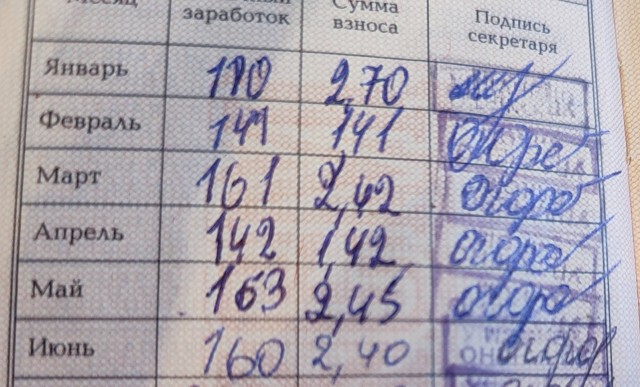 заработок Сумма взноса Подпись секретаря
Январь 180 2,70
Февраль 141 1,41
Март 161 2,42
Апрель 142 1,42
Май 163 2,45
Июнь 160 2,40